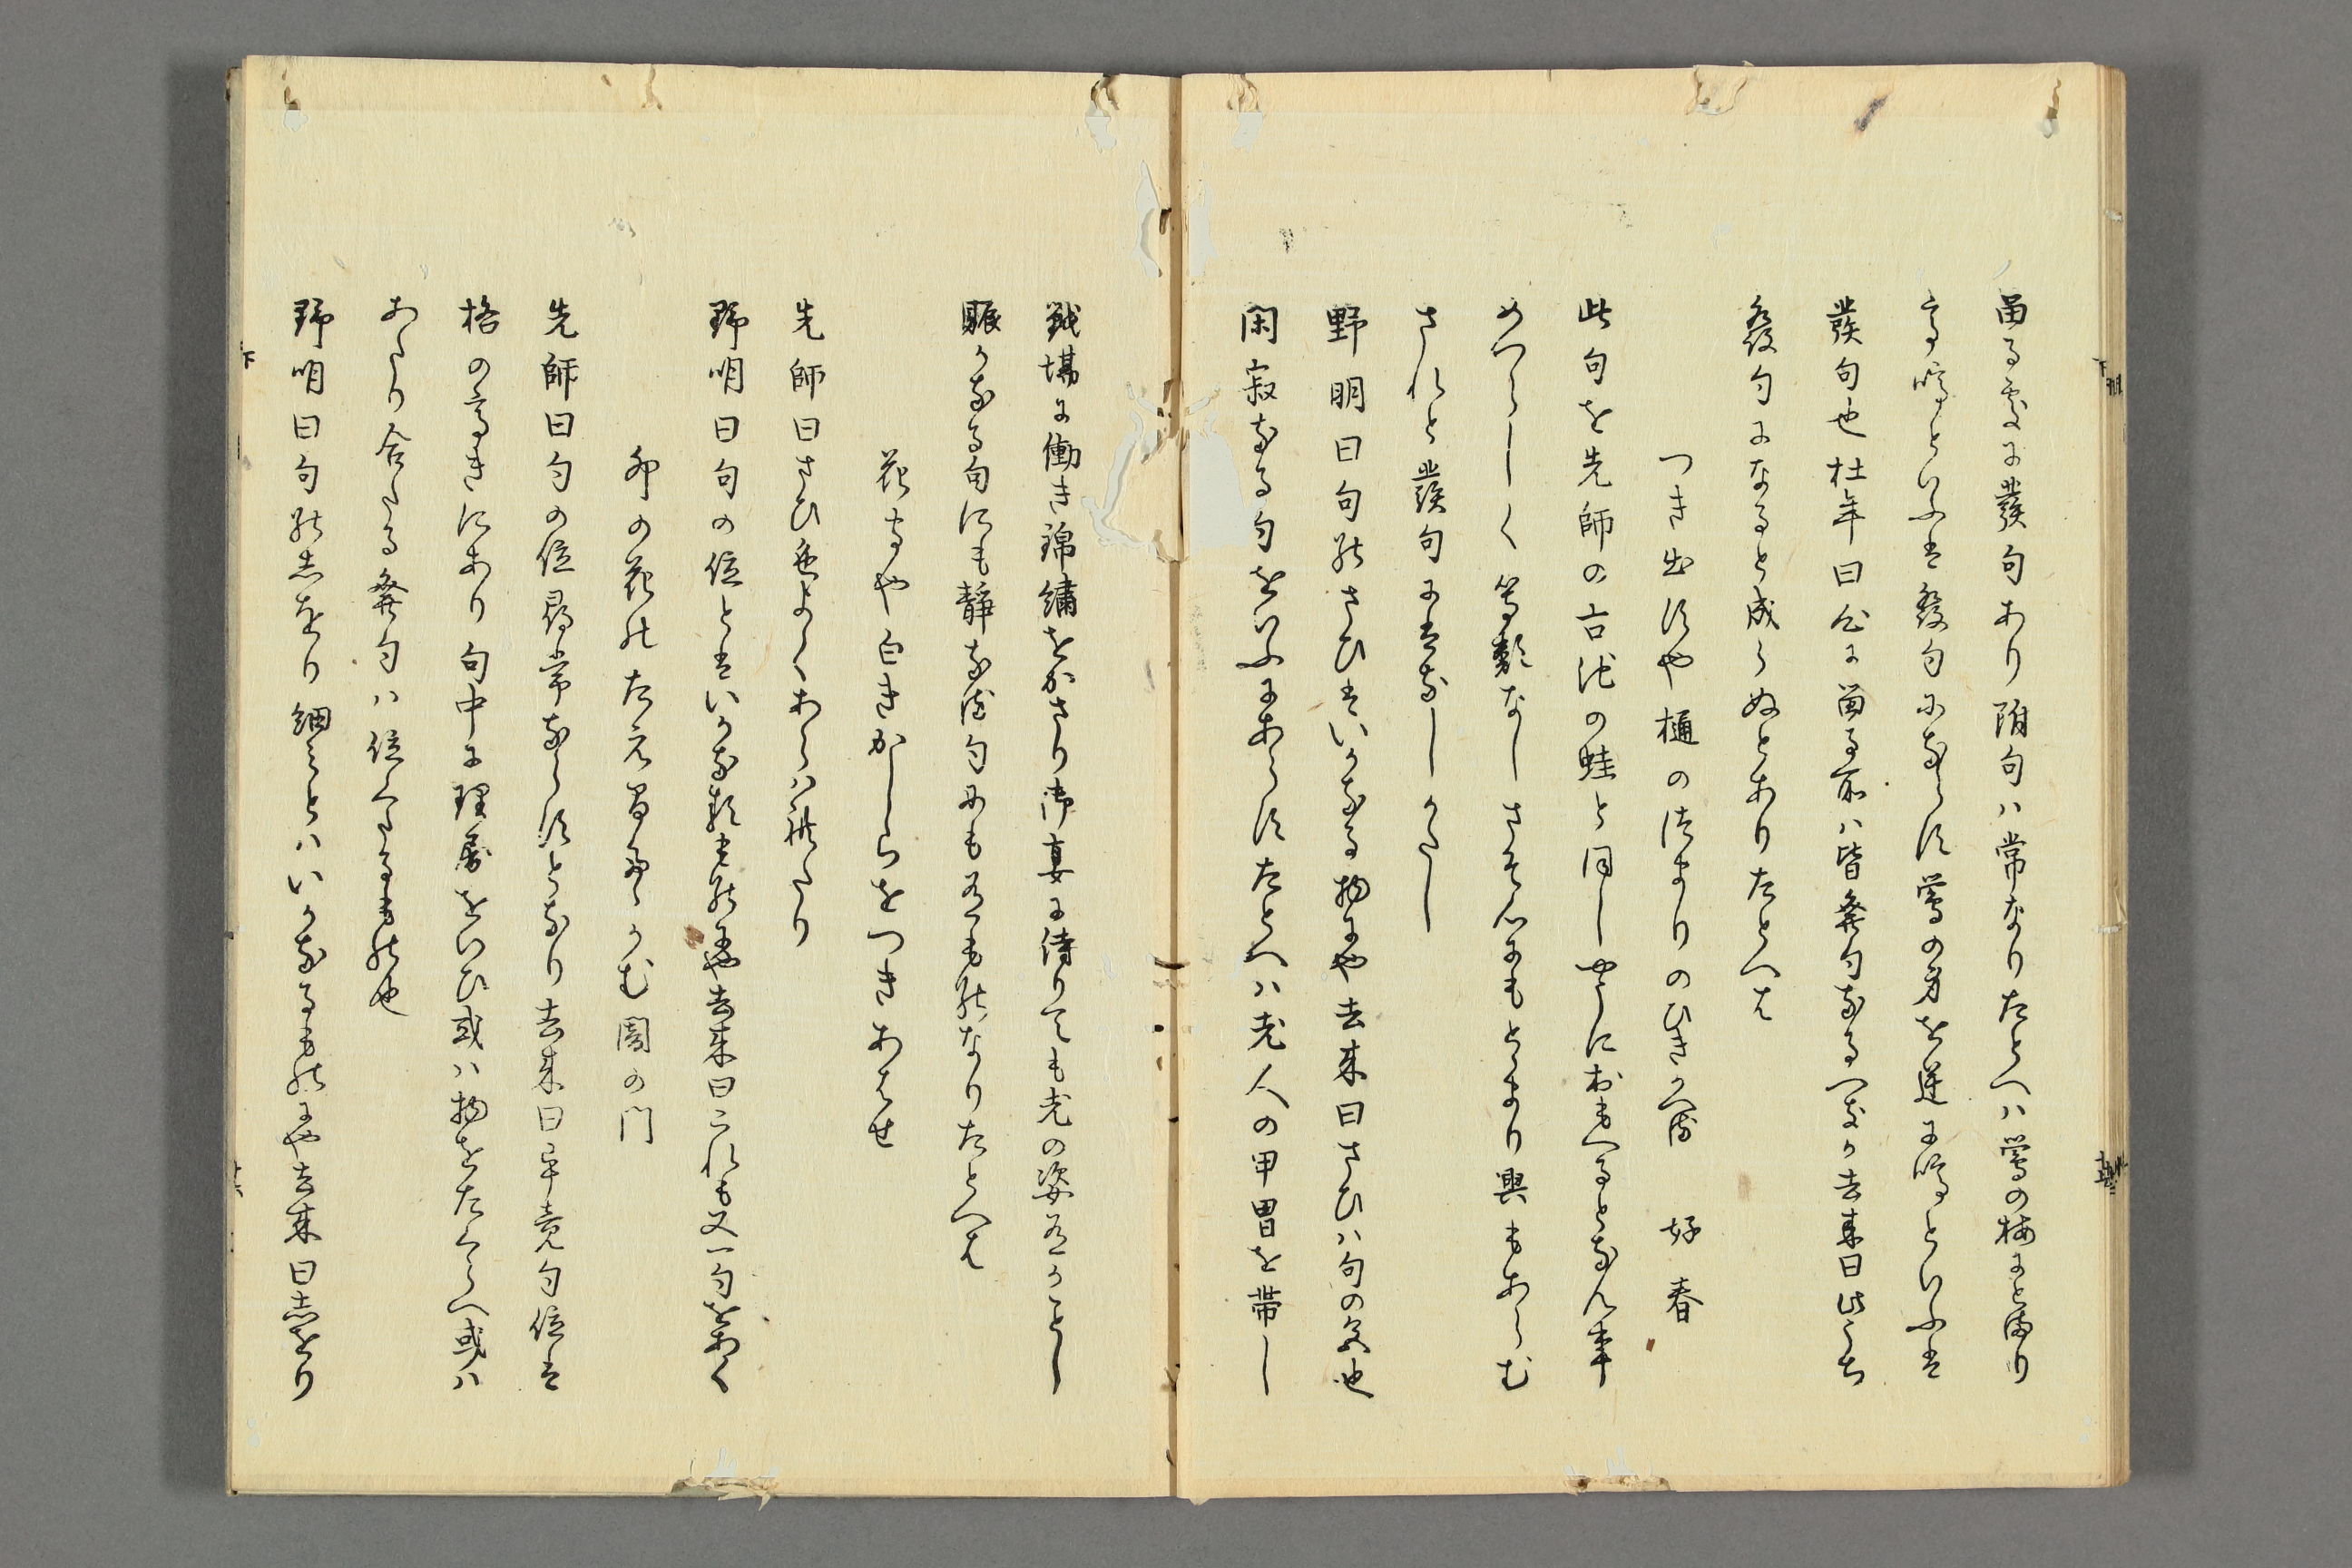 留る処に發句あり附句ハ常なりたとへハ鶯の梅にとまり
て啼といふは發句にならす鶯の身を逆に啼といふは
發句也杜年曰心に留る所ハ皆發句なるへきか去来曰此うち
發句になると成らぬとありたとへは
つき出すや樋のつまりのひきかへる　好春
此句を先師の古池の蛙と同しやうにおもへるとなん事
めつらしく等類なしさそ心にもとまり興もあらむ
されと發句にはなしかたし
野明曰句のさひはいかなる物にや去来曰さひハ句の色也
閑寂なる句をいふにあらすたとへハ老人の甲冑を帯し
戦場に働き錦繍をかさり御宴に侍りても老の姿有かことし
賑かなる句にも静なる句にも有もの也たとへは
花守や白きかしらをつきあはせ
先師曰さひ色よくあらハれたり
野明曰句の位とはいかなる物にや去来曰これも又一句をあく
卯の花のたえ間たゝかむ闇の門
先師曰句の位尋常ならすとなり去来曰畢竟句位は
格の高きにあり句中に理屈をいひ或ハ物をたくらへ或ハ
あたり合たる發句ハ位くたるもの也
野明曰句のしをり細みとハいかなるものにや去来曰しをり